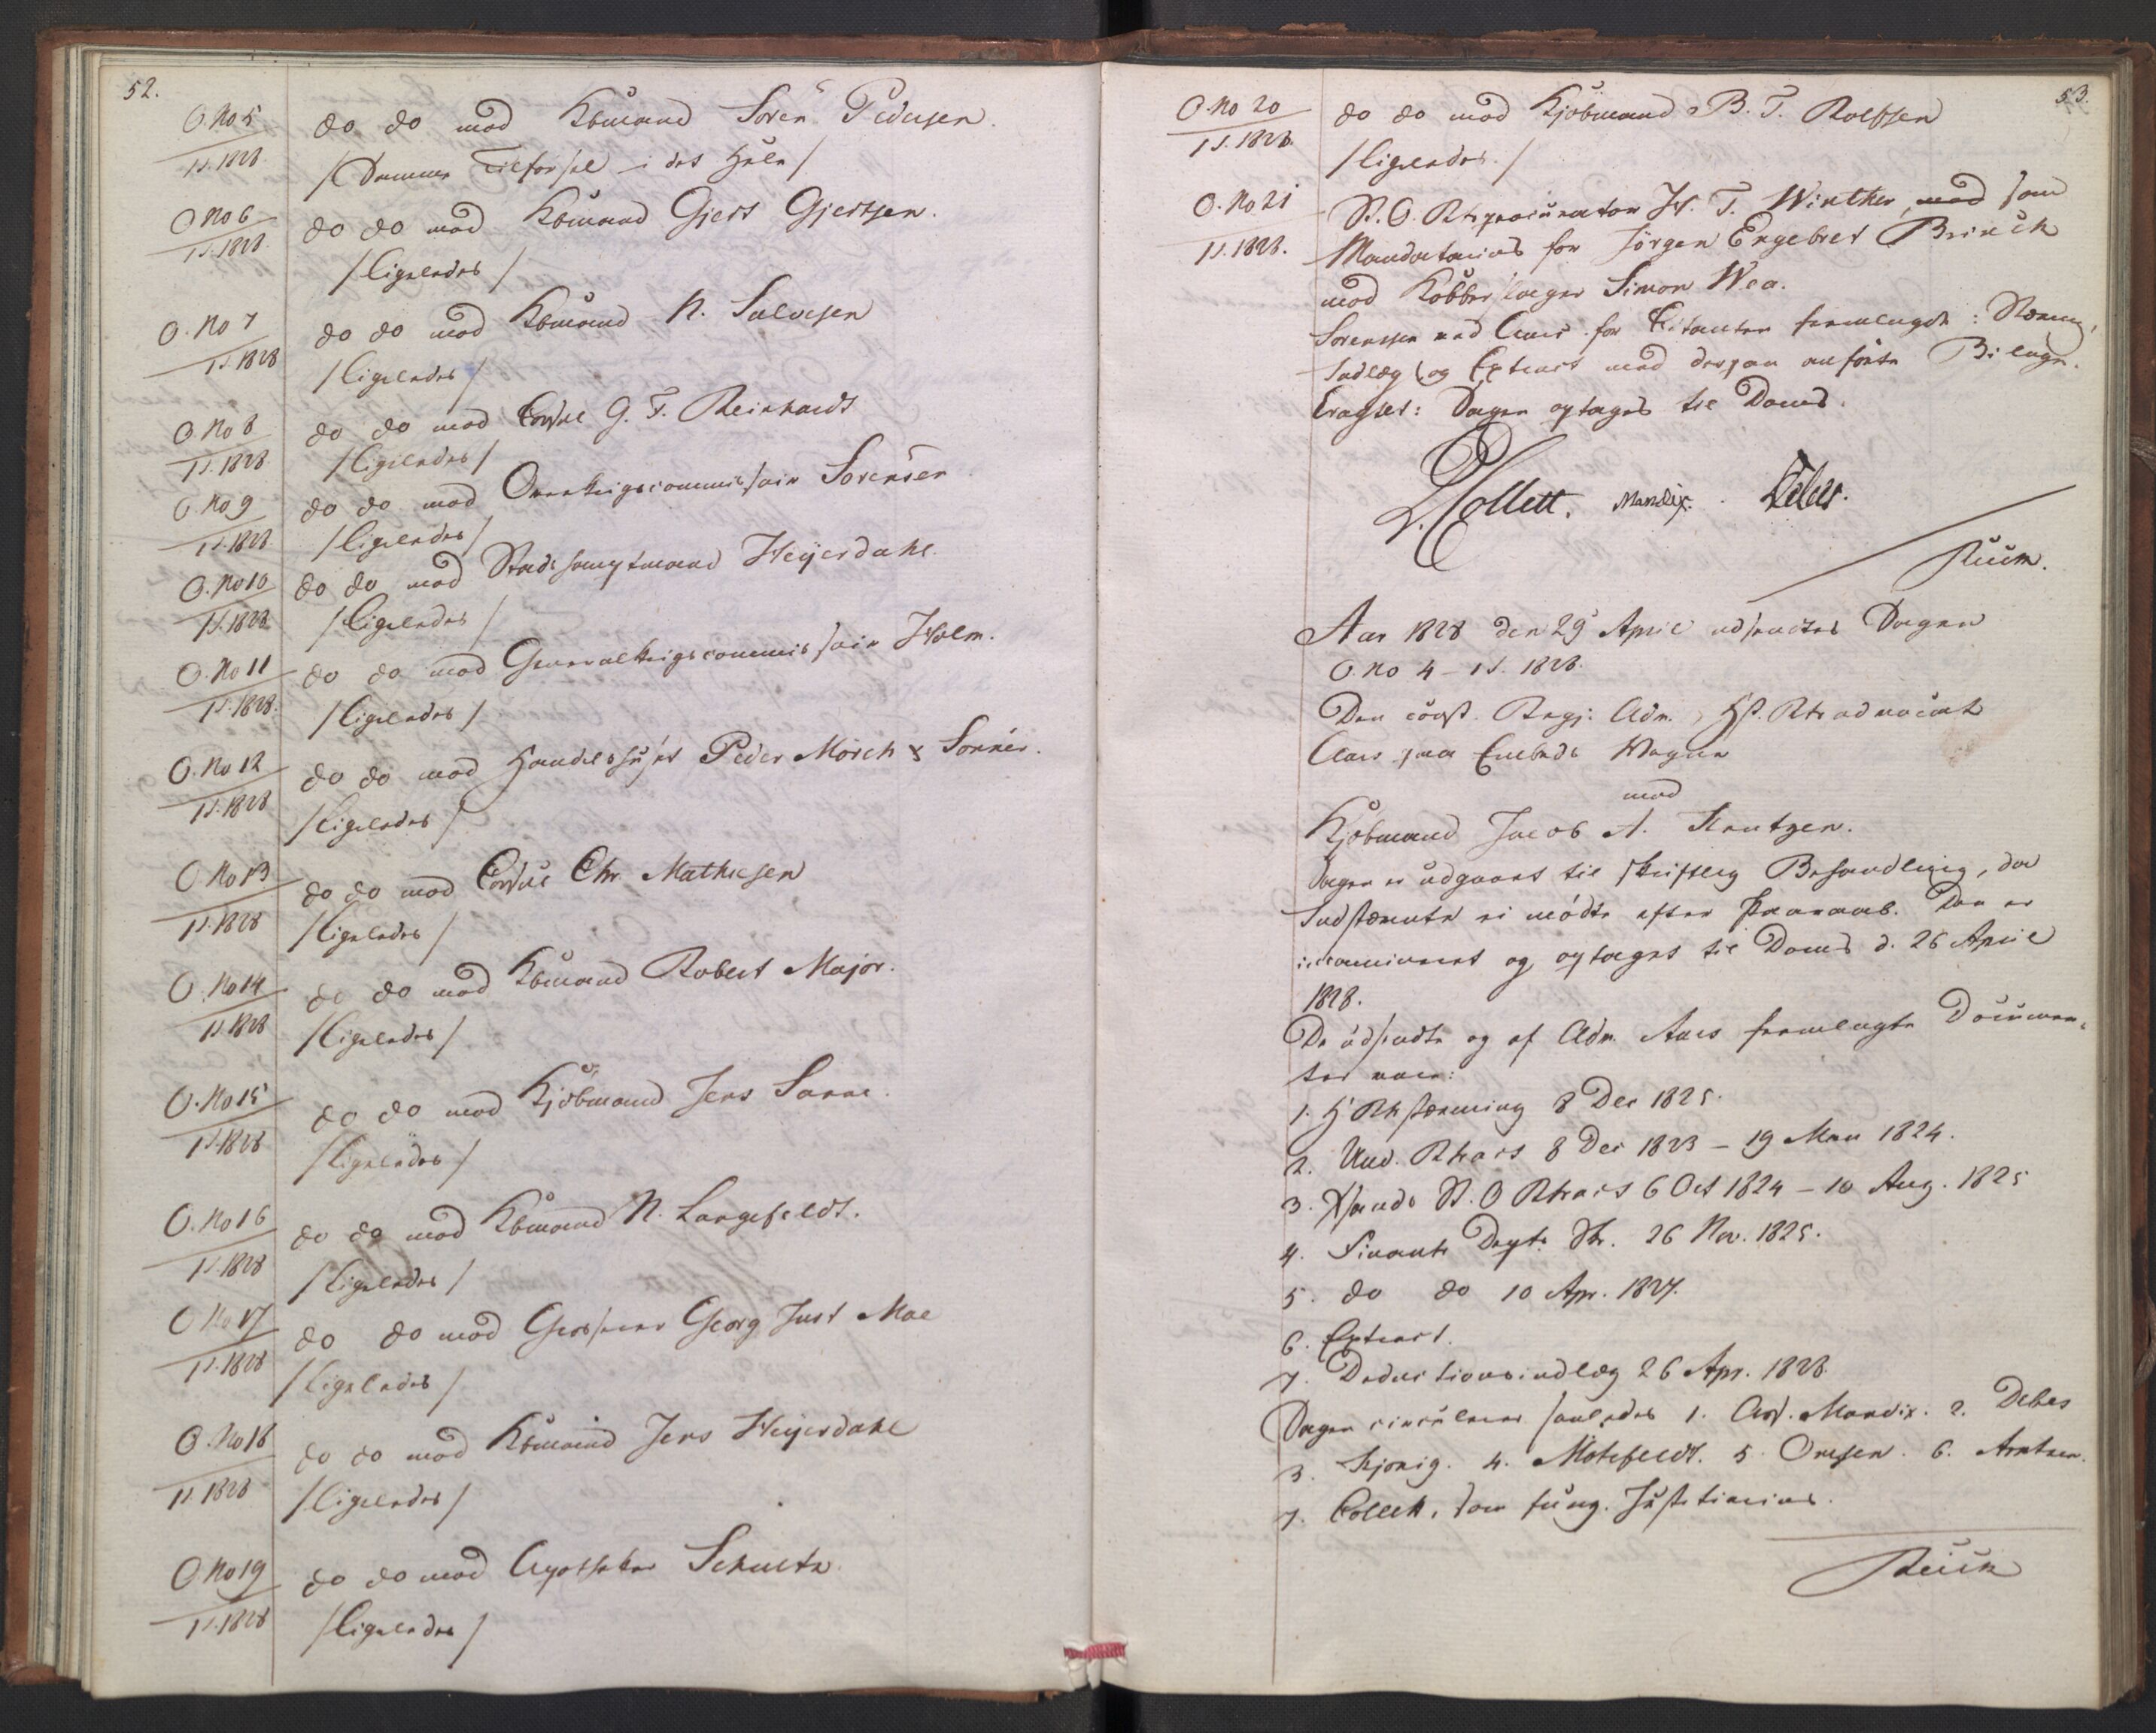 52.
O. No 5
1 S. 1828.
do do mod Kbmand Sören Pedersen.
/Samme Tilførsel i det Hele/
O No 6
1 S. 1828.
do do mod Kbmand Gjert Gjertsen.
/Ligeledes/
O. No 7
1 S. 1828
do do mod Kbmand N. Salvesen
/Ligeledes/
O. No 8
1 S. 1828.
do do mod Consul G. F. Reinhardt
/Ligeledes/
O. No 9
1 S. 1828
do do mod Overkrigscommissair Sorensen
/Ligeledes/
O. No 10
1 S. 1828
do do mod Stadshauptmand Heyerdahl.
/Ligeledes/
O. No 11
1 S. 1828.
do do mod Generalkrigscommissair Holm.
/Ligeledes/
O. No 12
1 S. 1828
do do mod Handelshuset Peder Mörch & Sönner.
/Ligeledes/
O. No 13
1 S. 1828
do do mod Consul Chr. Mathiesen
/Ligeledes/
O. No 14
1 S. 1828
do do mod Kbmand Robert Major.
/Ligeledes/
O. No 15
1 S. 1828
do do mod Kjöbmand Jens Lanne.
/Ligeledes/
O. No 16
1 S. 1828
do do mod Kbmand N. Langefeldt.
/Ligeledes/
O No 17
1 S. 1828
do do mod Grosserer Georg Just Moe
/Ligeledes/
O. No 18
1 S. 1828
do do mod Kbmand Jens Heyerdahl
/Ligeledes/
O No 19
1 S. 1828
do do mod Apotheker Schultz.
/Ligeledes/
53.
O. No 20
1 S. 1828.
do do mod Kjöbmand B. T. Rolfsen
/Ligeledes./
O. No 21
1 S. 1828.
St. O. Rtsprocurator H. T. Winther, mod som
Mandatarius for Jörgen Engebret Brinck
mod Kobberslager Simon Wea.
Sorenssen ved Aars for Citanten fremlagde: Stævning,
Indlæg og Extract med derpaa anførte Bilage.
Eragtet: Sagen optages til Doms.
J. Collett. Mandix. Debes.
Ruum.
Aar 1828 den 29 April udsættes Sagen
O. No 4 – 1 S. 1828.
Den const. Regj. Adv., Hst. Rtsadvocat
Aars paa Embeds Vegne
mod
Kjöbmand Jacob A. Knutzen.
Sagen er udgaaet til skriftlig Behandling, da
Indstævnte ei mödte efter Paaraab. Den er
incamineret og optaget til Doms d. 26 April
1828.
De udstædte og af Adv. Aars fremlagte Documen-
ter vare:
1. H Rtsstævning 8 Dec 1825.
2. Und. Rtsact 8 Dec 1823 – 19 Mai 1824.
3. Xsands St. O Rtsact 6 Oct 1824 – 10 Aug. 1825
4. Finants Depts. Skr. 26 Nov. 1825.
5. do do 10 Apr. 1827.
6. Extract.
7. Deductionsindlæg 26 Apr. 1828.
Sagen circulerer saaledes 1. Ass. Mandix. 2. Debes
3. Kjönig. 4. Motzfeldt. 5. Omsen. 6. Arntzen.
7. Collett, som fung. Justitiarius.
Ruum